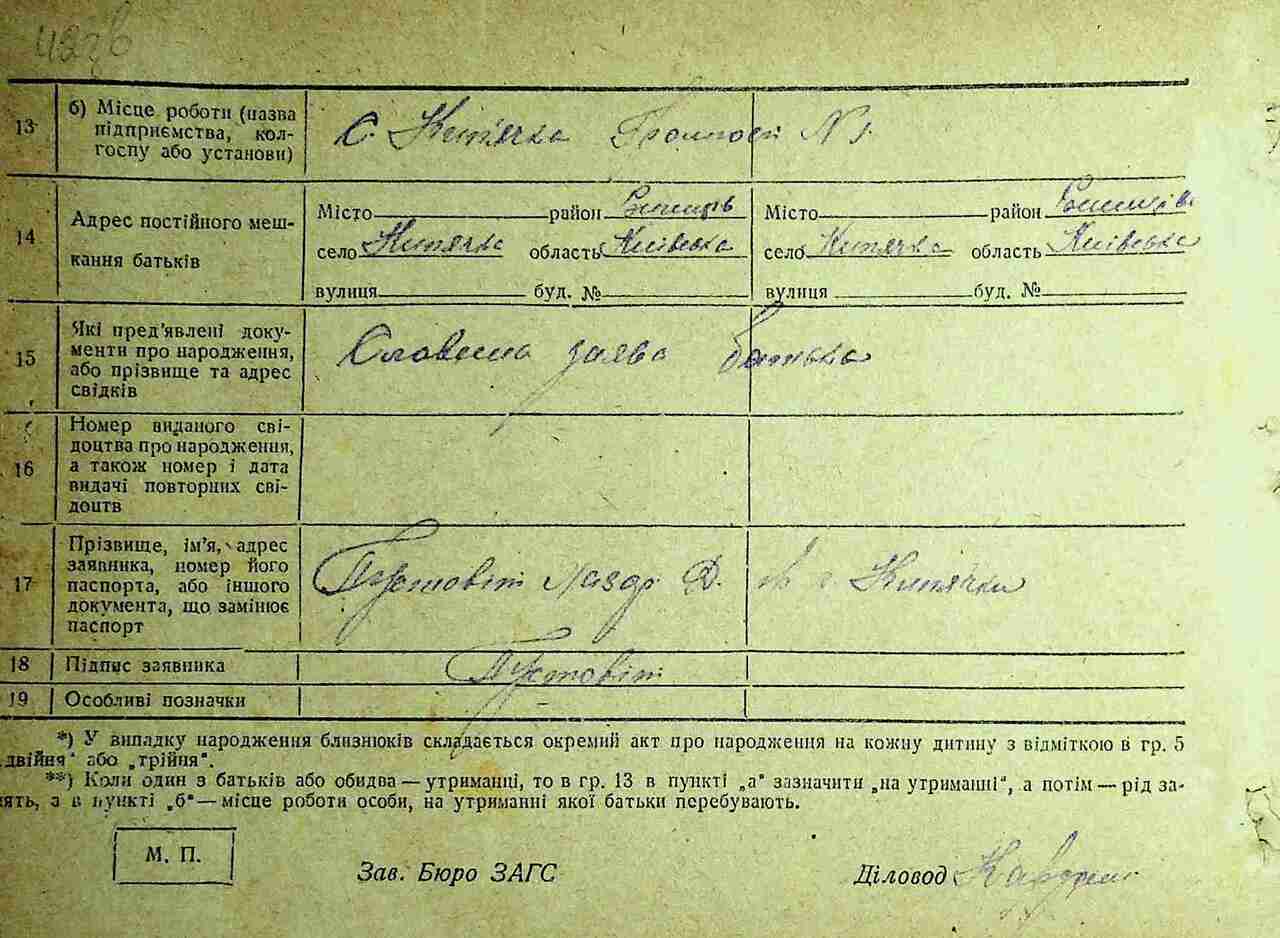 13 б) Місце роботи (назва
підприємства, кол-
госпу або установи)
с. Кип'ячка N 1
14 Адрес постійного меш-
кання батьків
Місто район Ржищів Місто район Ржищів
село Кипячка область Київська село Кипячка область Київська
вулиця буд. № вулиця буд. №
15 Які пред'явлені доку-
менти про народження,
або прізвище та адрес
свідків
Словесна заява батька
16 Номер виданого сві-
доцтва про народження,
а також номер і дата
видачі повторних сві-
доцтв
17 Прізвище, ім'я, адрес
заявника, номер його
паспорта, або іншого
документа, що замінює
паспорт
Пустовіт Лазар Д. с Кип'ячки
18 Підпис заявника Пустовіт
19 Особливі позначки –
*) У випадку народження близнюків складається окремий акт про народження на кожну дитину з відміткою в гр. 5
„двійня" або „трійня".
**) Коли один з батьків або обидва — утриманні, то в гр. 13 в пункті „а" зазначити „на утриманні", а потім — рід за-
нять, а в пункті „б" — місце роботи особи, на утриманні якої батьки перебувають.
М. П.
Зав. Бюро ЗАГС Діловод